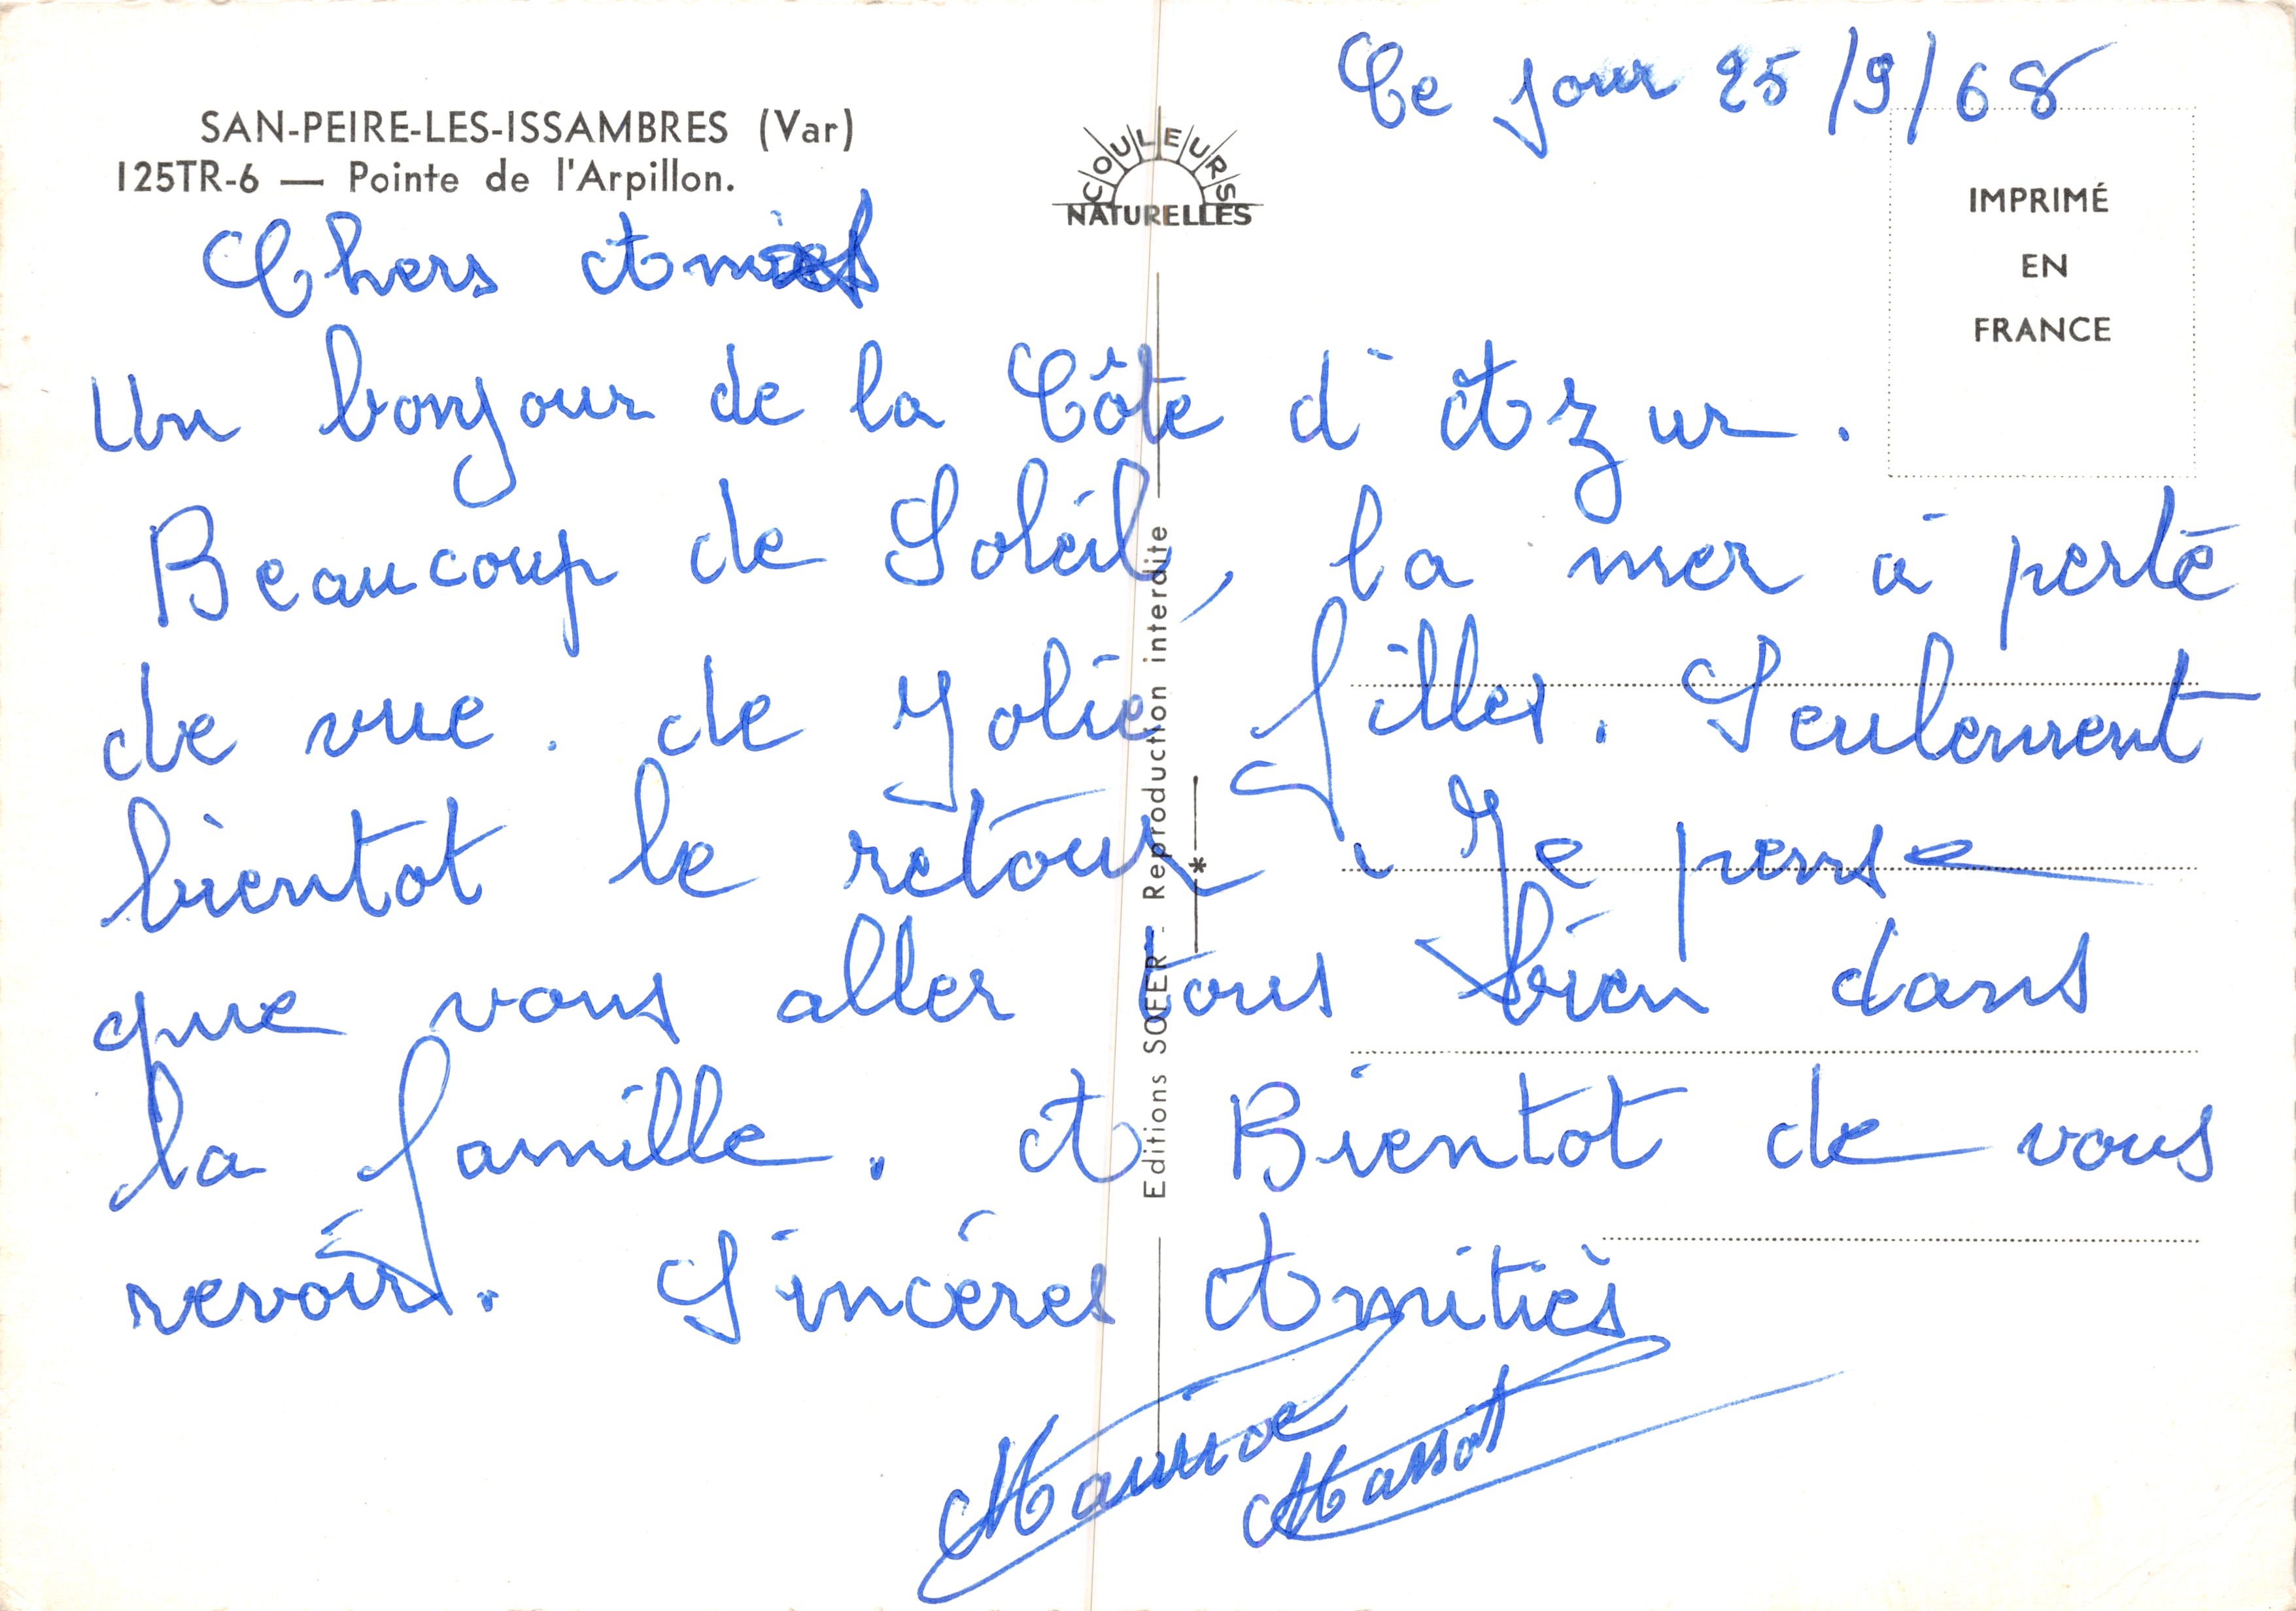 Ce jour 25/9/68
SAN-PEIRE-LES-ISSAMBRES (Var)
125TR-6 — Pointe de l'Arpillon.
COULEURS
NATURELLES
IMPRIMÉ
EN
FRANCE
Chers Amis
Un bonjour de la Côte d'Azur.
Beaucoup de Soleil, la mer à perte
de vue. de Jolie filles. Seulement
bientot le retour. Je pense
que vous aller tous bien dans
la famille. A Bientot de vous
revoir. Sincéres Amitiés
Maurice
Massot
Editions SOFER - Reproduction interdite